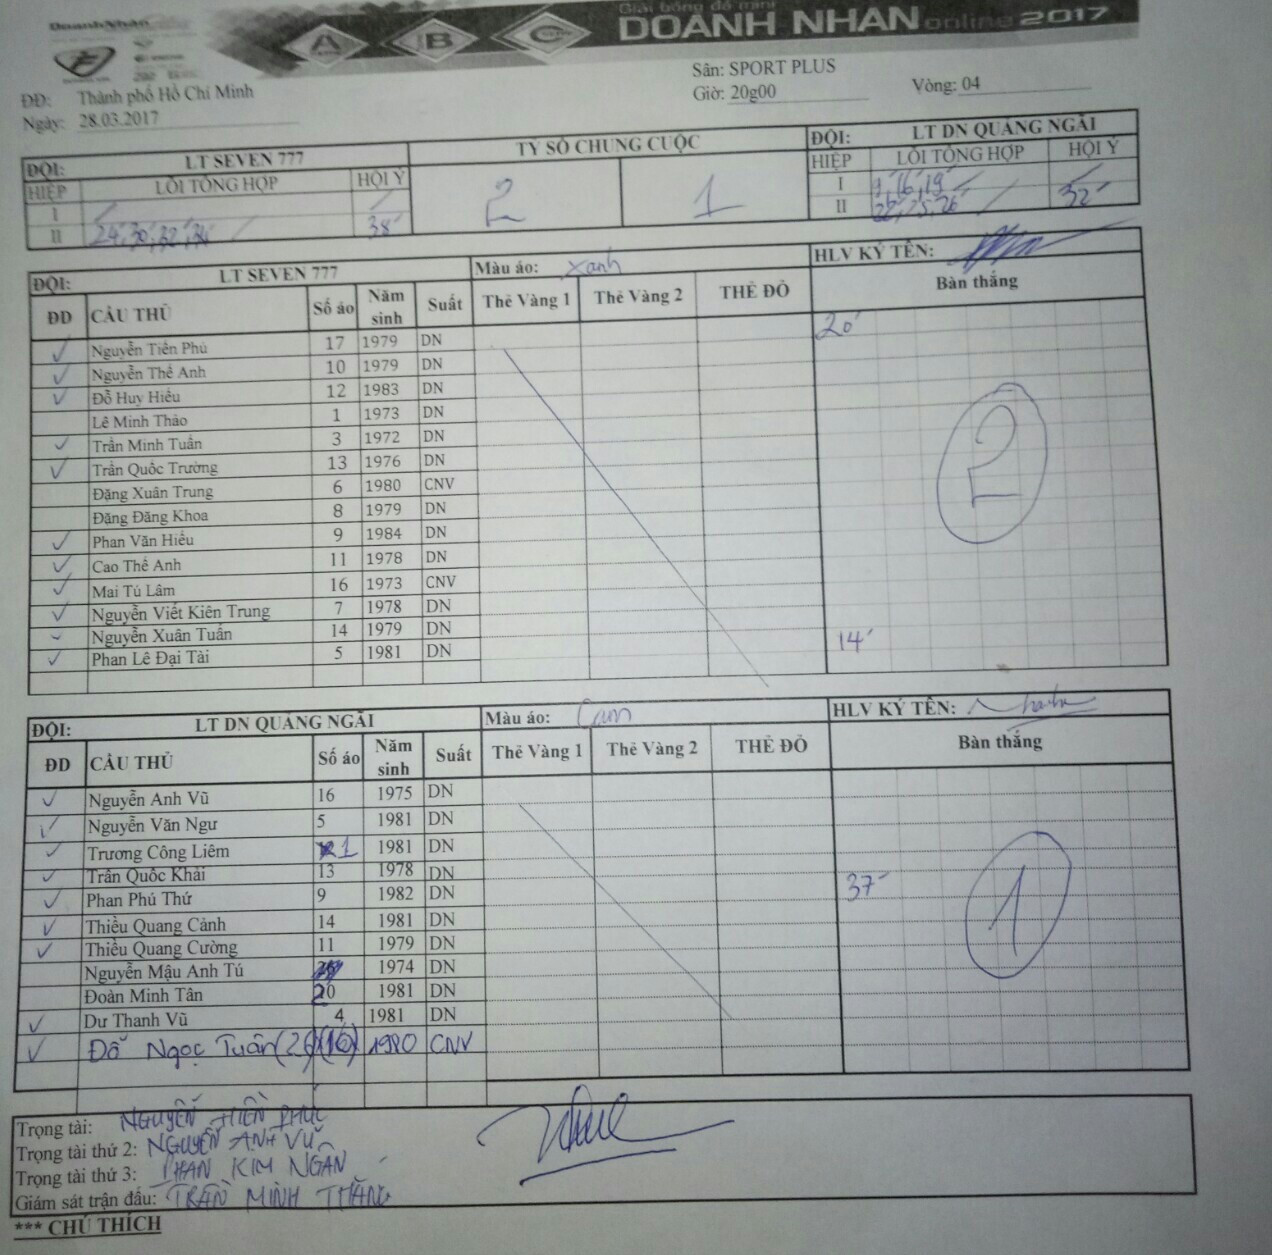 DoanhNhân
Giải bóng đá mini
DOANH NHAN online 2017
A B C
ĐĐ: Thành phố Hồ Chí Minh
Sân: SPORT PLUS
Ngày: 28.03.2017
Giờ: 20g00 Vòng: 04
ĐỘI: LT SEVEN 777 TỶ SỐ CHUNG CUỘC ĐỘI: LT DN QUẢNG NGÃI
HIỆP LỖI TỔNG HỢP HỘI Ý 2 1 HIỆP LỖI TỔNG HỢP HỘI Ý
I I 9, 16, 19
II 24, 30, 32, 38' II 22, 25, 26 32'
ĐỘI: LT SEVEN 777 Màu áo: xanh HLV KÝ TÊN:
ĐD CẦU THỦ Số áo Năm sinh Suất Thẻ Vàng 1 Thẻ Vàng 2 THẺ ĐỎ Bàn thắng
✓ Nguyễn Tiến Phú 17 1979 DN 20'
✓ Nguyễn Thế Anh 10 1979 DN
✓ Đỗ Huy Hiếu 12 1983 DN
Lê Minh Thảo 1 1973 DN
✓ Trần Minh Tuấn 3 1972 DN
✓ Trần Quốc Trường 13 1976 DN
Đặng Xuân Trung 6 1980 CNV
Đặng Đăng Khoa 8 1979 DN
✓ Phan Văn Hiếu 9 1984 DN
✓ Cao Thế Anh 11 1978 DN
✓ Mai Tú Lâm 16 1973 CNV
✓ Nguyễn Viết Kiên Trung 7 1978 DN
✓ Nguyễn Xuân Tuấn 14 1979 DN 14'
✓ Phan Lê Đại Tài 5 1981 DN
2
ĐỘI: LT DN QUẢNG NGÃI Màu áo: Cam HLV KÝ TÊN:
ĐD CẦU THỦ Số áo Năm sinh Suất Thẻ Vàng 1 Thẻ Vàng 2 THẺ ĐỎ Bàn thắng
✓ Nguyễn Anh Vũ 16 1975 DN
✓ Nguyễn Văn Ngư 5 1981 DN
✓ Trương Công Liêm 1 1981 DN
✓ Trần Quốc Khải 13 1978 DN
✓ Phan Phú Thứ 9 1982 DN 37'
✓ Thiều Quang Cảnh 14 1981 DN
✓ Thiều Quang Cường 11 1979 DN
Nguyễn Mậu Anh Tú 1974 DN
Đoàn Minh Tân 20 1981 DN
✓ Dư Thanh Vũ 4 1981 DN
✓ Đỗ Ngọc Tuấn (26) (16) 1980 CNV
1
Trọng tài: NGUYỄN HIỀN PHÚC
Trọng tài thứ 2: NGUYỄN ANH VŨ
Trọng tài thứ 3: PHAN KIM NGÂN
Giám sát trận đấu: TRẦN MINH THẮNG
*** CHÚ THÍCH